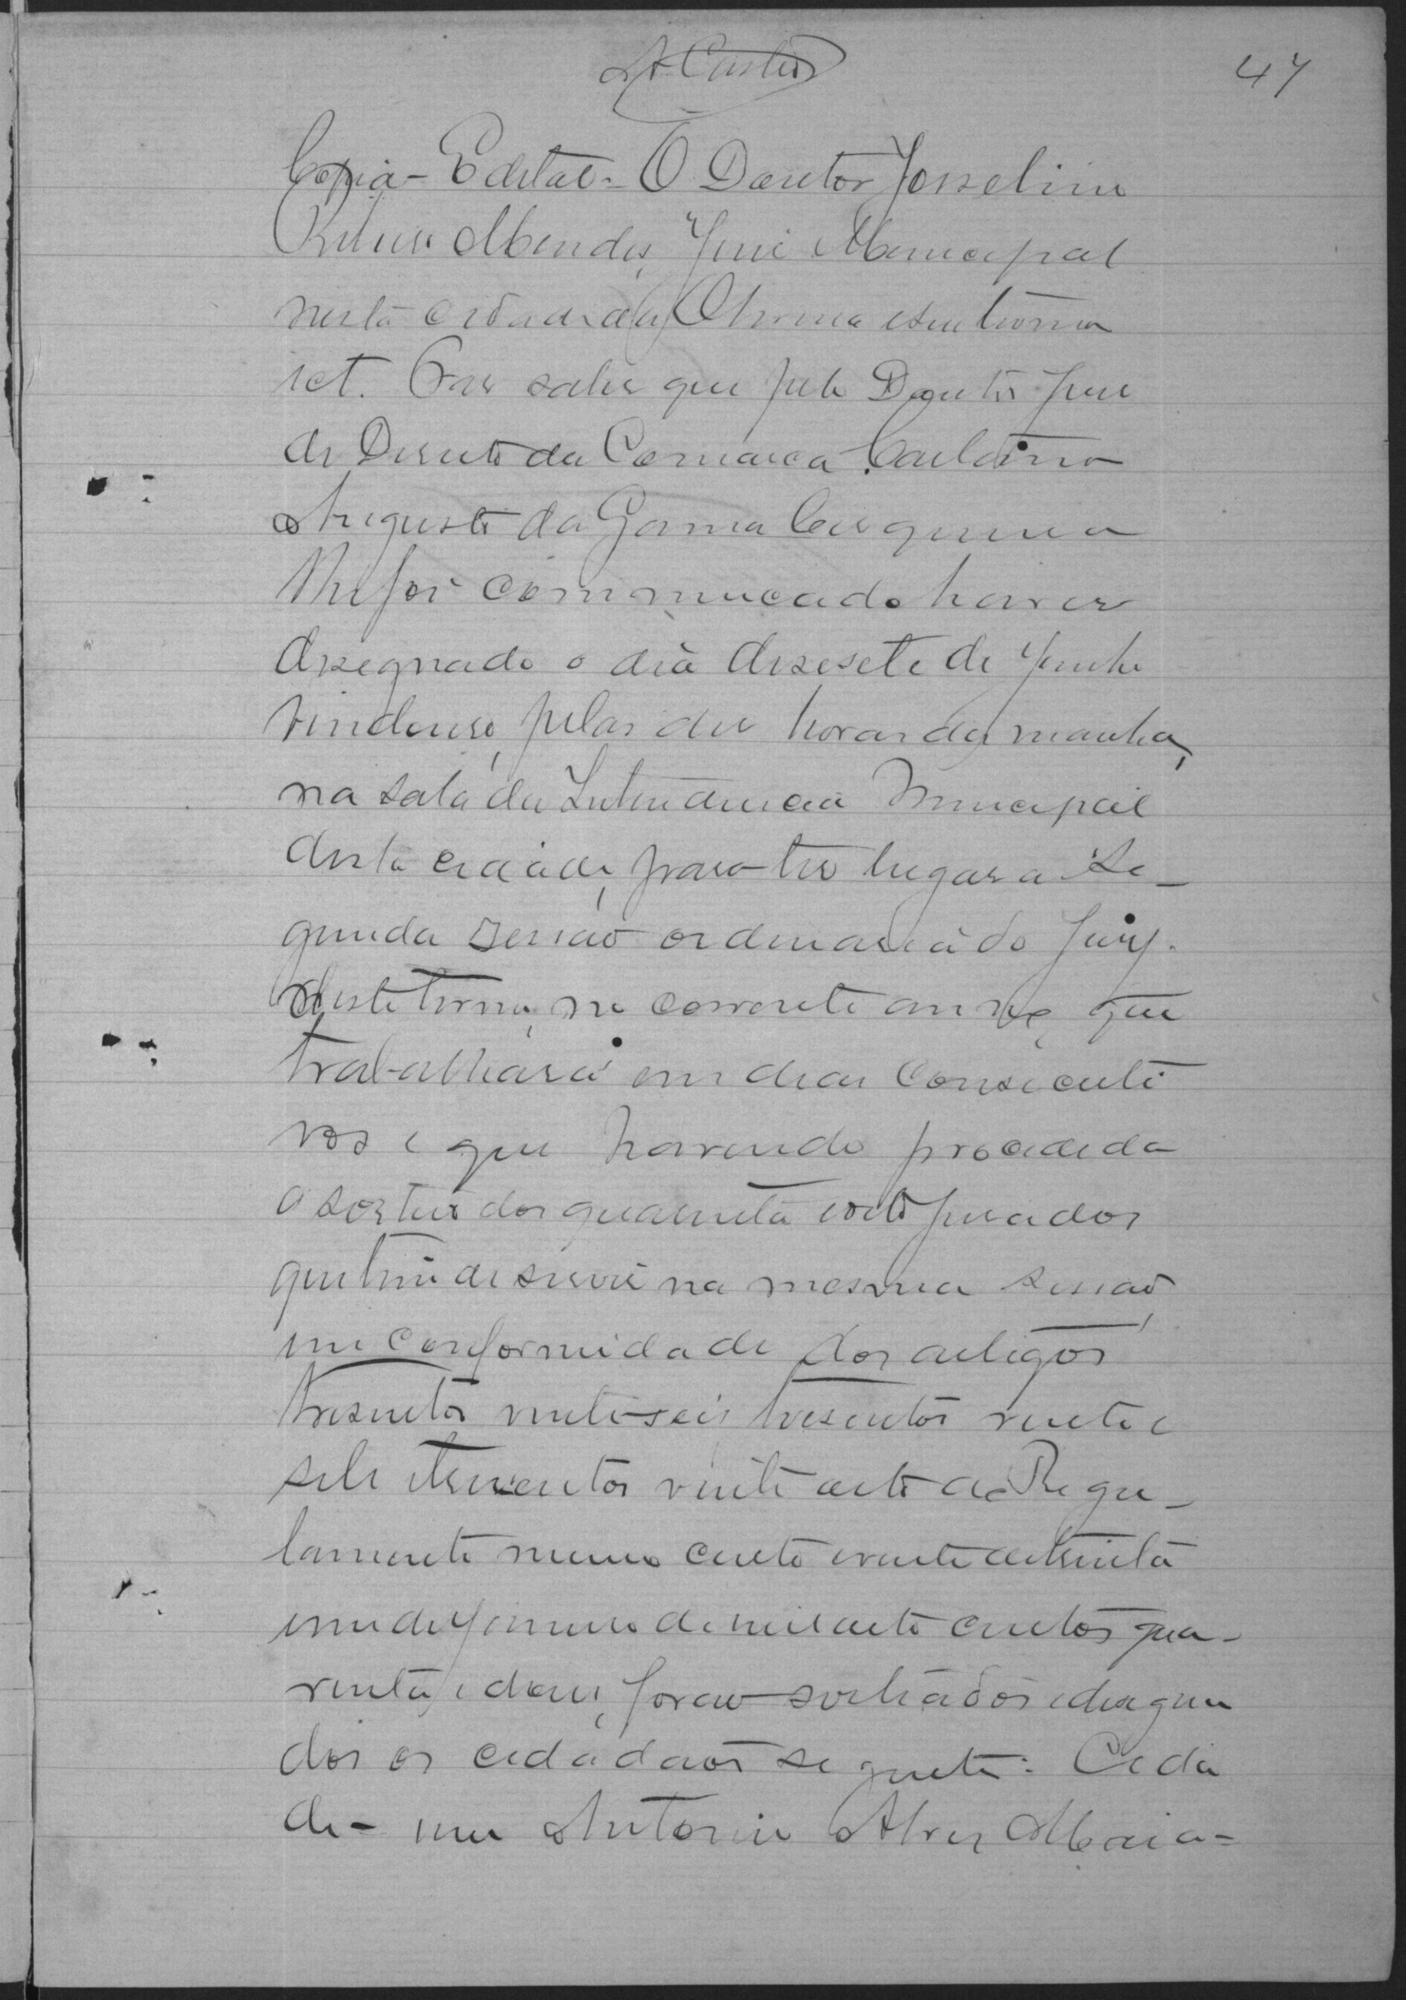 A Castro
47
Copia - Edital - O Doutor Josselino
Ribeiro Mendes, Juiz Municipal
nesta cidade da e seu termo
ect. Faz saber que pelo Doutor Juiz
de Direito da Comarca
Augusto da Gama Cerqueira
lhe foi communicado haver
designado o dia desesete de Junho
vindouro, pelas dez horas da manhã,
na sala da Intendencia Municipal
desta cidade, para ter lugar a Se-
gunda sessão ordinaria do Jury
deste termo, no corrente anno, que
trabalhará em dias consecuti
vos e que havendo procedido
o sorteio dos quarenta e oito jurados
que tem de servir na mesma sessão,
em conformidade dos artigos
tresentos vinte seis, tresentos vinte e
sete e tresentos vinte oito do Regu-
lamento numero cento e vinte de trinta
e um de Janeiro de mil oito centos qua-
renta e dous, forão sorteados e designa
dos os cidadãos seguintes: Cida
de - um Antonio Alves Maia -